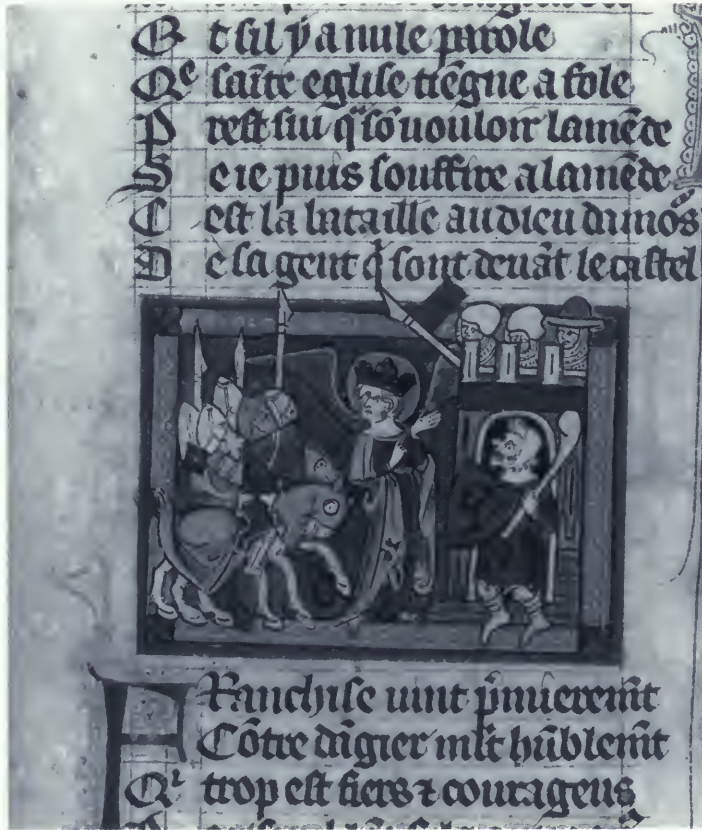 E t sil y a nule parole
Q̄e saīte eglise tiēgne a fole
P rest sui q̄ sō uouloir lamēde
S e ie puis souffire a lamēde
C est la bataille au dieu damōs
D e sa gent q̄ sont deuāt le castel
F Ranchise uint p̄mieremt̄
Cōtre dāgier mlt̄ hūblemt̄
Qi trop est fiers ⁊ courageus